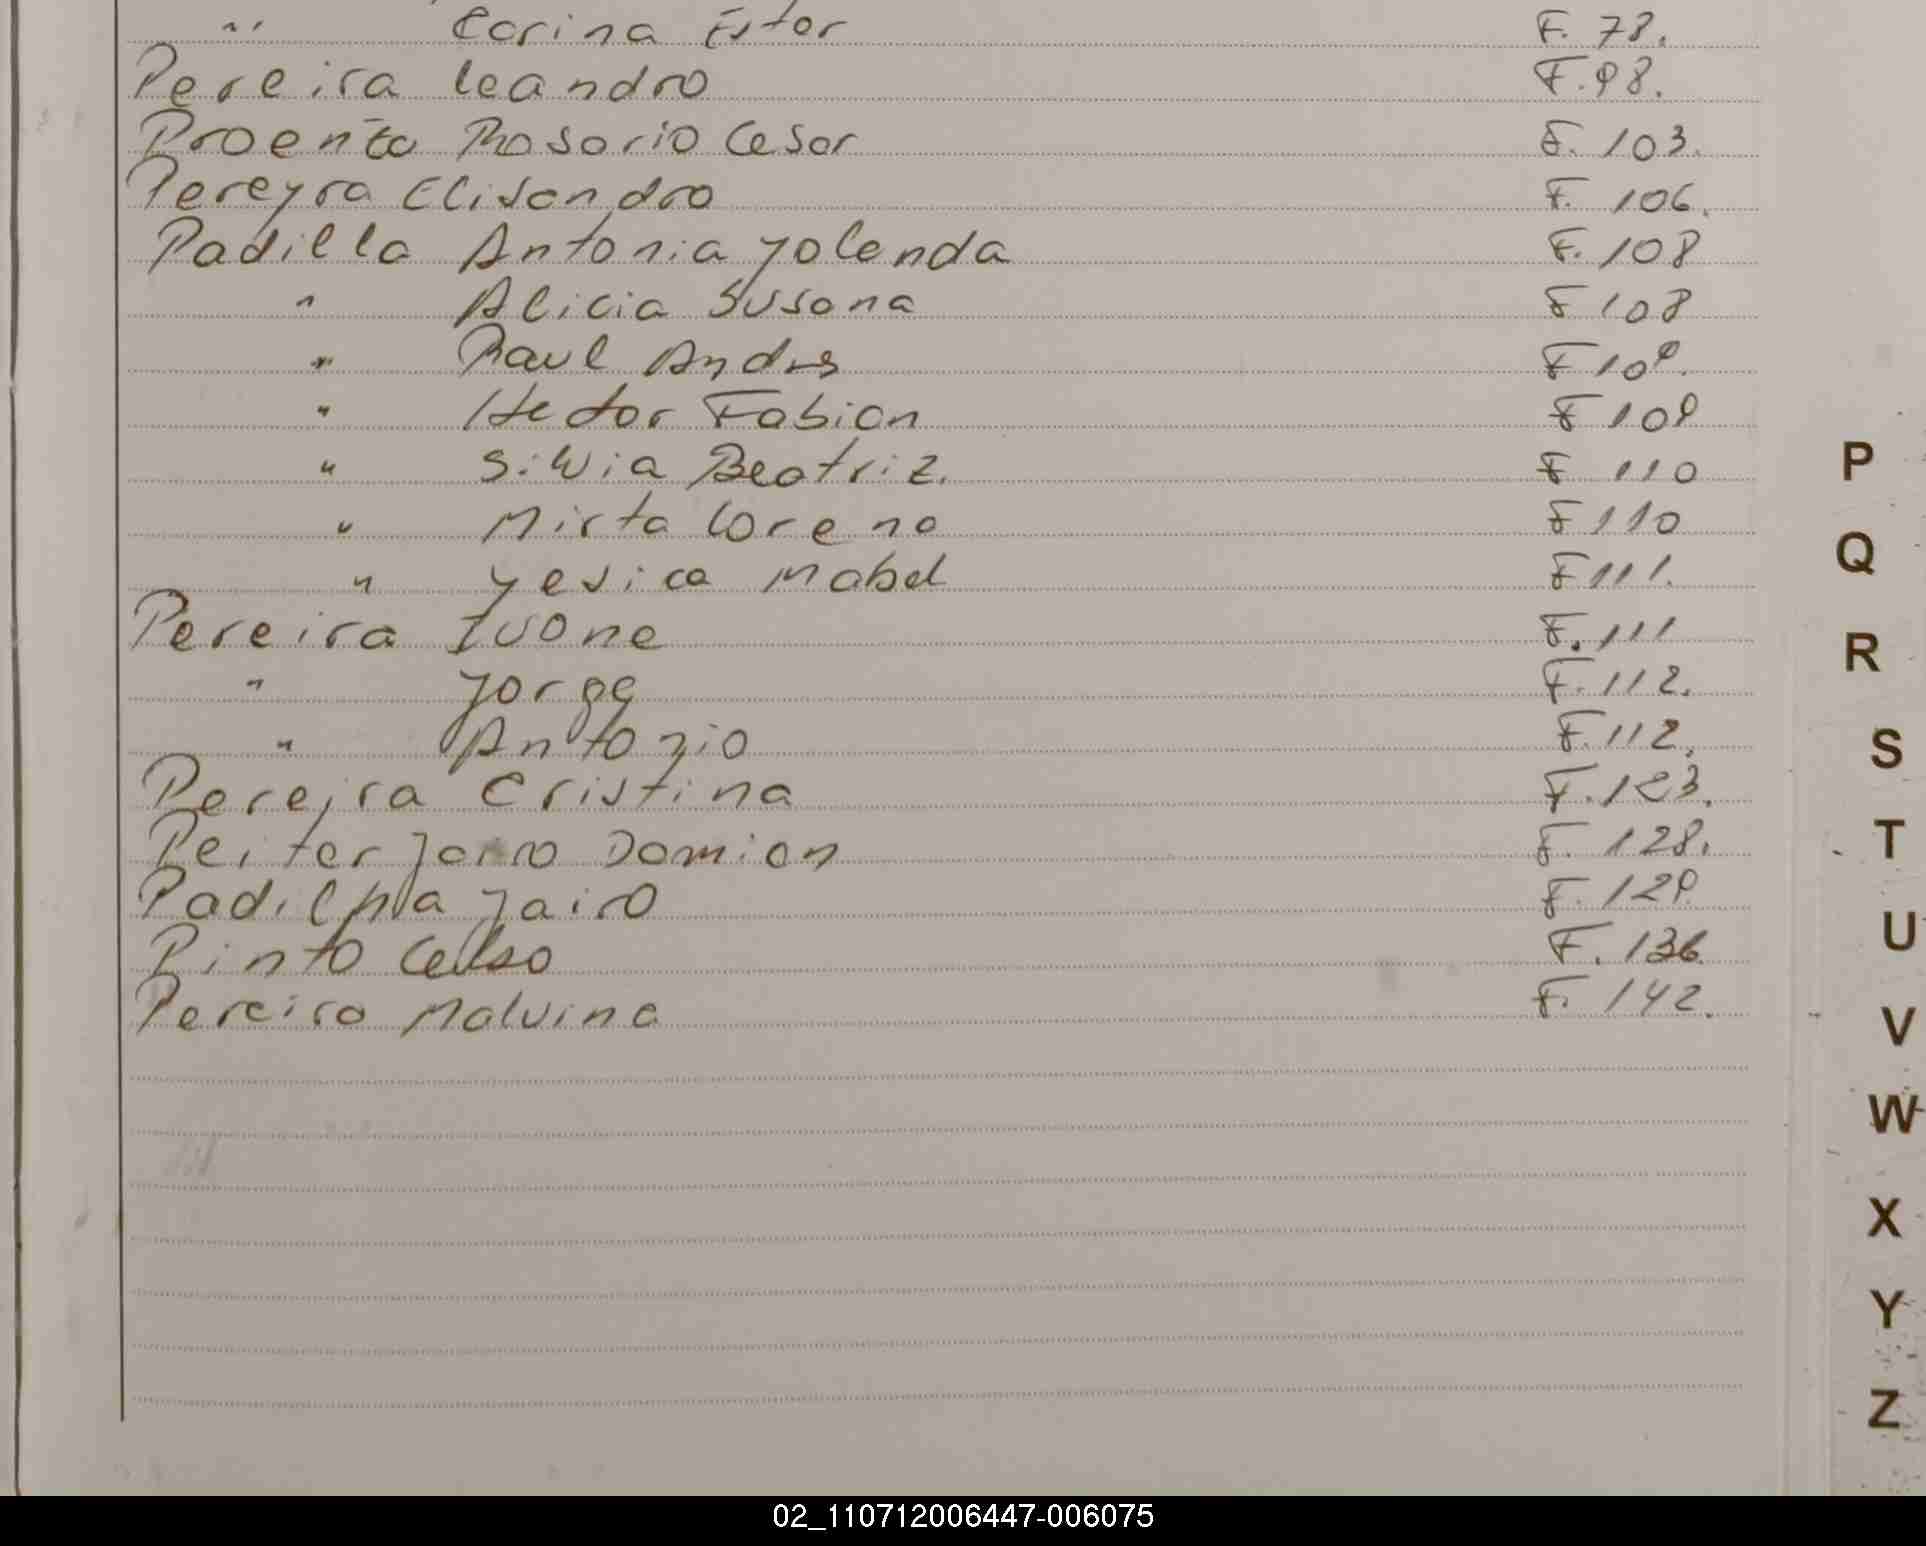 " Corina Ester F. 78.
Pereira Leandro F. 98.
Proenta Rosario Cesar F. 103.
Pereyra Elisandro F. 106.
Padilla Antonia Yolenda F. 108
" Alicia Susana F 108
" Raul Andres F 109.
" Hector Fabian F 109
" Silvia Beatriz. F 110
" Mirta Lorena F 110
" Yesica Mabel F 111.
Pereira Ivone F. 111
" Jorge F. 112.
" Antonio F. 112.
Pereira Cristina F. 123.
Peiter Jairo Damian F. 128.
Padilha Jairo F. 129.
Pinto Celso F. 136.
Pereira Malvina F. 142.
P
Q
R
S
T
U
V
W
X
Y
Z
02_110712006447-006075